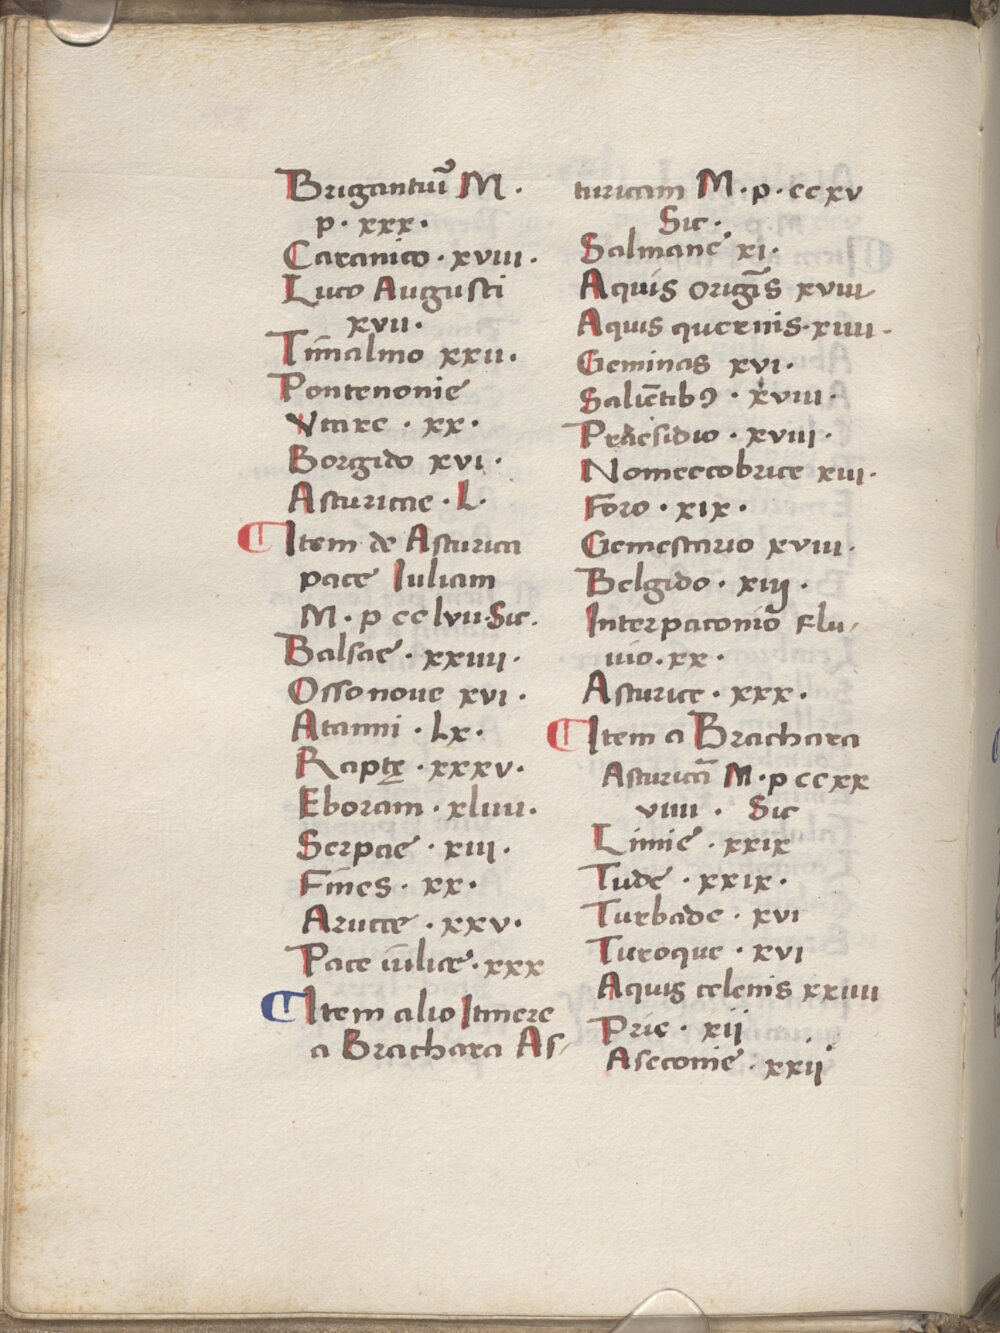 Brigantiū M ·
p · xxx ·
Caranico · xviii ·
Luco Augusti
xvii ·
Timalmo xxii ·
Pontenonie
Vtare · xx ·
Borgido xvi ·
Asturicae · L ·
Item de Asturica
pace Iuliam
M · p cc lvii · Sic ·
Balsae · xxiiii ·
Ossonoue xvi ·
Atanni · Lx ·
Rapte · xxxv ·
Eboram · xliiii ·
Serpae · xiii ·
Fines · xx ·
Arucce · xxv ·
Pace iulice · xxx
Item alio Itinere
a Brachara As-
turicam M · p · cc xv
Sic ·
Salmane xi ·
Aquis origīs xviii
Aquis quernis · xiiii ·
Geminas xvi ·
Saliētibꝯ · xviii ·
Praesidio · xviii ·
Nomeecobrice xiii ·
Foro · xix ·
Gemestario xviii ·
Belgido · xiij ·
Interpaconio Flu-
uio · xx ·
Asturice · xxx ·
Item a Brachara
Asturicā M · p cc xx
viiii · Sic
Limie · xxix
Tude · xxix ·
Turbade · xvi
Turoque · xvi
Aquis celenis xxiiii
Prie · xij
Aseconie · xxij